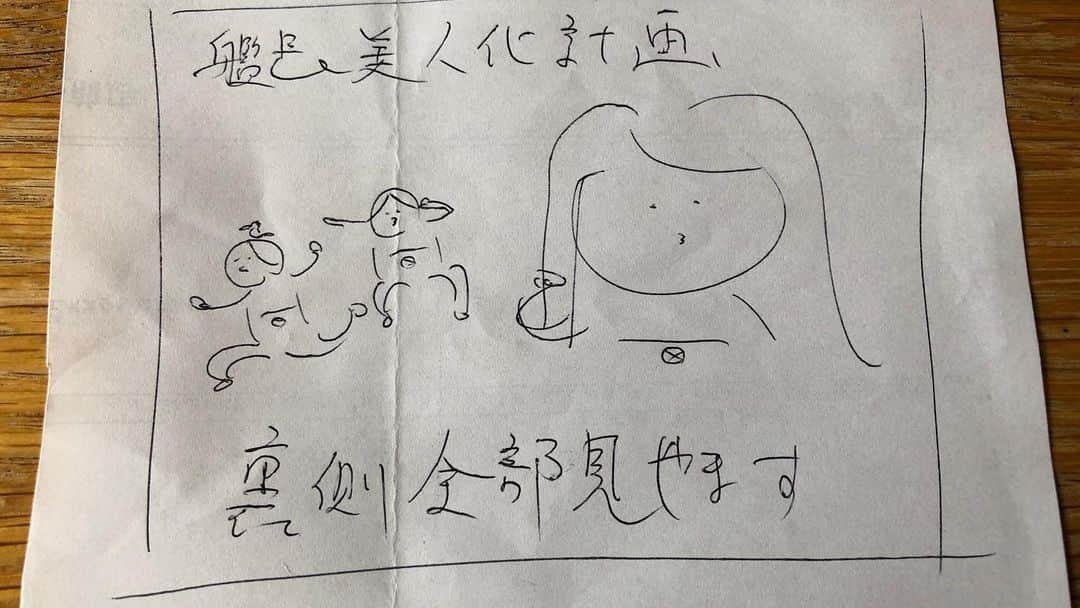 美人化計画
裏側全部見せます